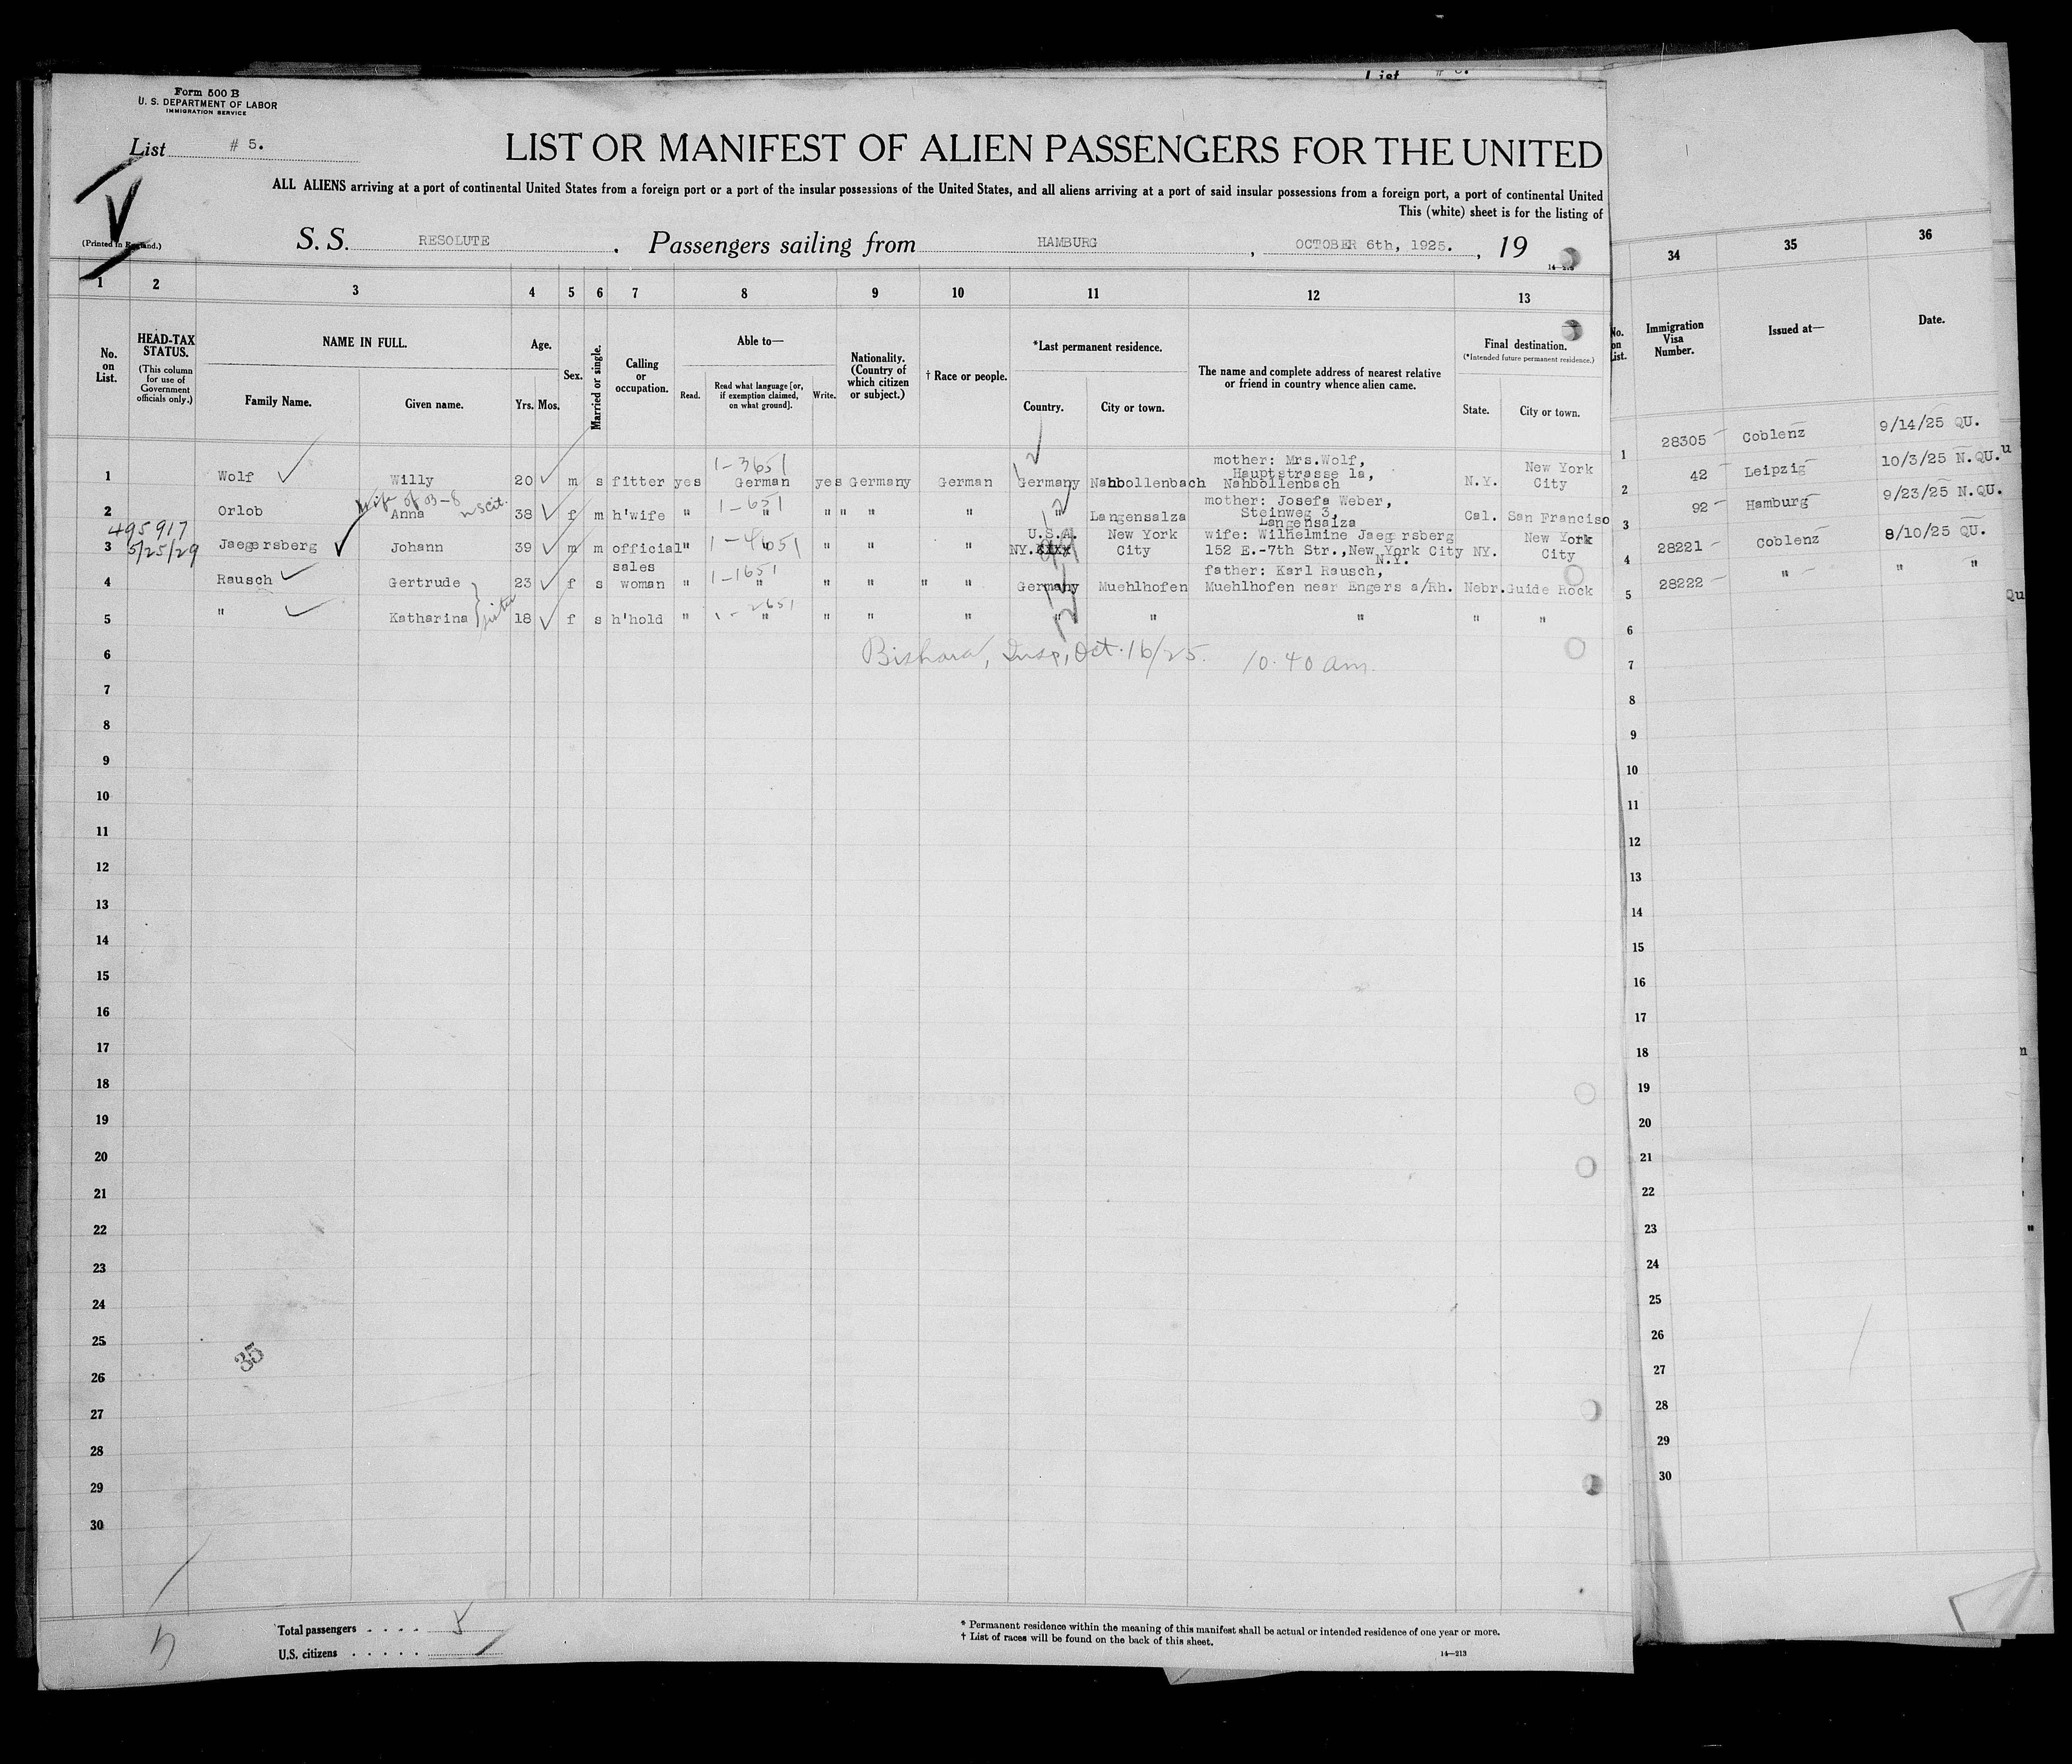 List # 5.
Form 500 B
U. S. DEPARTMENT OF LABOR
IMMIGRATION SERVICE
List # 5.
LIST OR MANIFEST OF ALIEN PASSENGERS FOR THE UNITED
ALL ALIENS arriving at a port of continental United States from a foreign port or a port of the insular possessions of the United States, and all aliens arriving at a port of said insular possessions from a foreign port, a port of continental United
This (white) sheet is for the listing of
V
(Printed in England.)
S. S. RESOLUTE. Passengers sailing from HAMBURG, OCTOBER 6th, 1925., 19
14-213
1 2 3 4 5 6 7 8 9 10 11 12 13 34 35 36
No. on List.
HEAD-TAX STATUS.
(This column for use of Government officials only.)
NAME IN FULL.
Family Name. Given name.
Age.
Yrs. Mos.
Sex.
Married or single.
Calling or occupation.
Able to—
Read. Read what language [or, if exemption claimed, on what ground]. Write.
Nationality. (Country of which citizen or subject.)
† Race or people.
*Last permanent residence.
Country. City or town.
The name and complete address of nearest relative or friend in country whence alien came.
Final destination.
(*Intended future permanent residence.)
State. City or town.
No. on List.
Immigration Visa Number.
Issued at—
Date.
1-3651
1 Wolf Willy 20 m s fitter yes German yes Germany German Germany Nahbollenbach mother: Mrs.Wolf, Hauptstrasse 1a, Nahbollenbach N.Y. New York City 1 28305 Coblenz 9/14/25 QU.
wife of 03-8
1-651
2 Orlob Anna 38 f m h'wife " " " " " " " Langensalza mother: Josefa Weber, Steinweg 3, Langensalza Cal. San Franciso 2 42 Leipzig 10/3/25 N.QU.
495917
5/25/29
1-4651
3 Jaegersberg Johann 39 m m official " " " " " U.S.A. NY. New York City wife: Wilhelmine Jaegersberg 152 E.-7th Str.,New York City N.Y. NY. New York City 3 92 Hamburg 9/23/25 N.QU.
1-1651
4 Rausch Gertrude 23 f s sales woman " " " " " " Germany Muehlhofen father: Karl Rausch, Muehlhofen near Engers a/Rh. Nebr. Guide Rock 4 28221 Coblenz 8/10/25 QU.
sister
1-2651
5 " Katharina 18 f s h'hold " " " " " " " " " " 5 28222 " " "
Qu
6 Bishara, Insp, Oct. 16/25. 10.40 am. 6
7 7
8 8
9 9
10 10
11 11
12 12
13 13
14 14
15 15
16 16
17 17
18 18
19 19
20 20
21 21
22 22
23 23
24 24
25 25
35
26 26
27 27
28 28
29 29
30 30
Total passengers . . . . 5
U.S. citizens . . . . .
* Permanent residence within the meaning of this manifest shall be actual or intended residence of one year or more.
† List of races will be found on the back of this sheet.
14-213